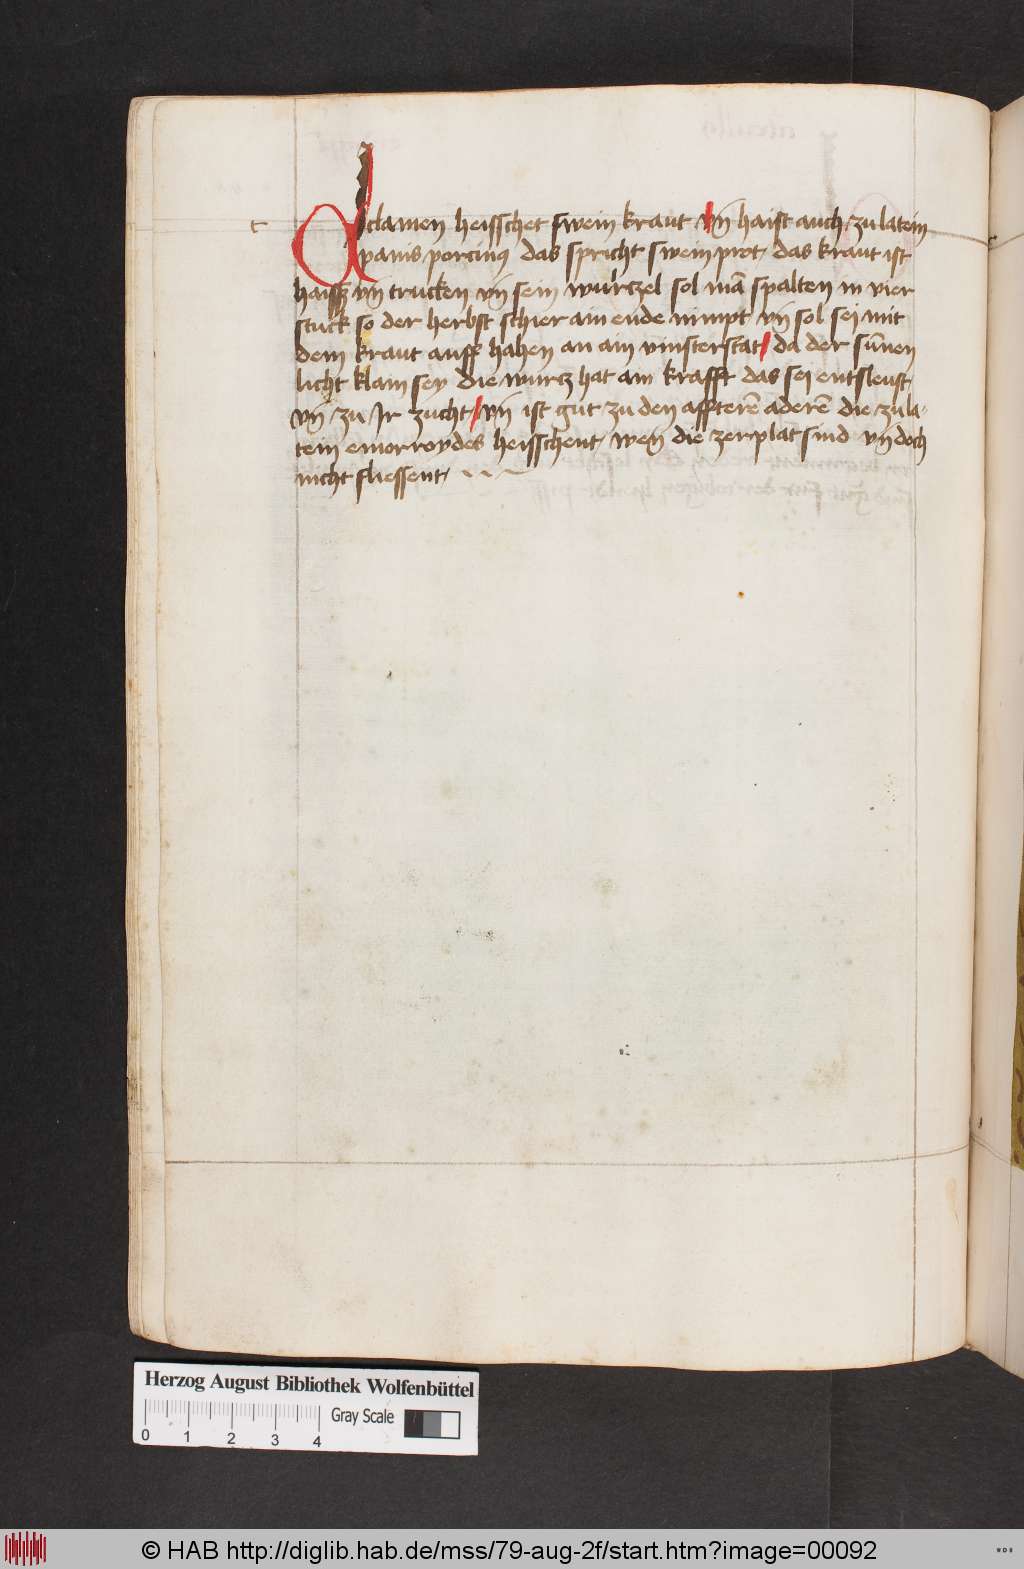 c
Ciclamen heisschet swein kraut vn̄ haist auch zu latein
panis porcinꝰ das spricht swein prot das kraut ist
haissz vn̄ trucken vn̄ sein wurczel sol mā spalten in vier
stuck so der herbst schier ain ende nimpt vn̄ sol sei mit
dem kraut auff hahen an ain vinster stat / da der sūnen
licht klain sey die wurcz hat ain krafft das sei entsleust
vn̄ zu Jr zucht / vn̄ ist gut zu den affterē aderē die zu la-
tein emorroydes heisschent wen die zerplat sind vn̄ doch
nicht fliessent.
Herzog August Bibliothek Wolfenbüttel
Gray Scale
0 1 2 3 4
© HAB http://diglib.hab.de/mss/79-aug-2f/start.htm?image=00092